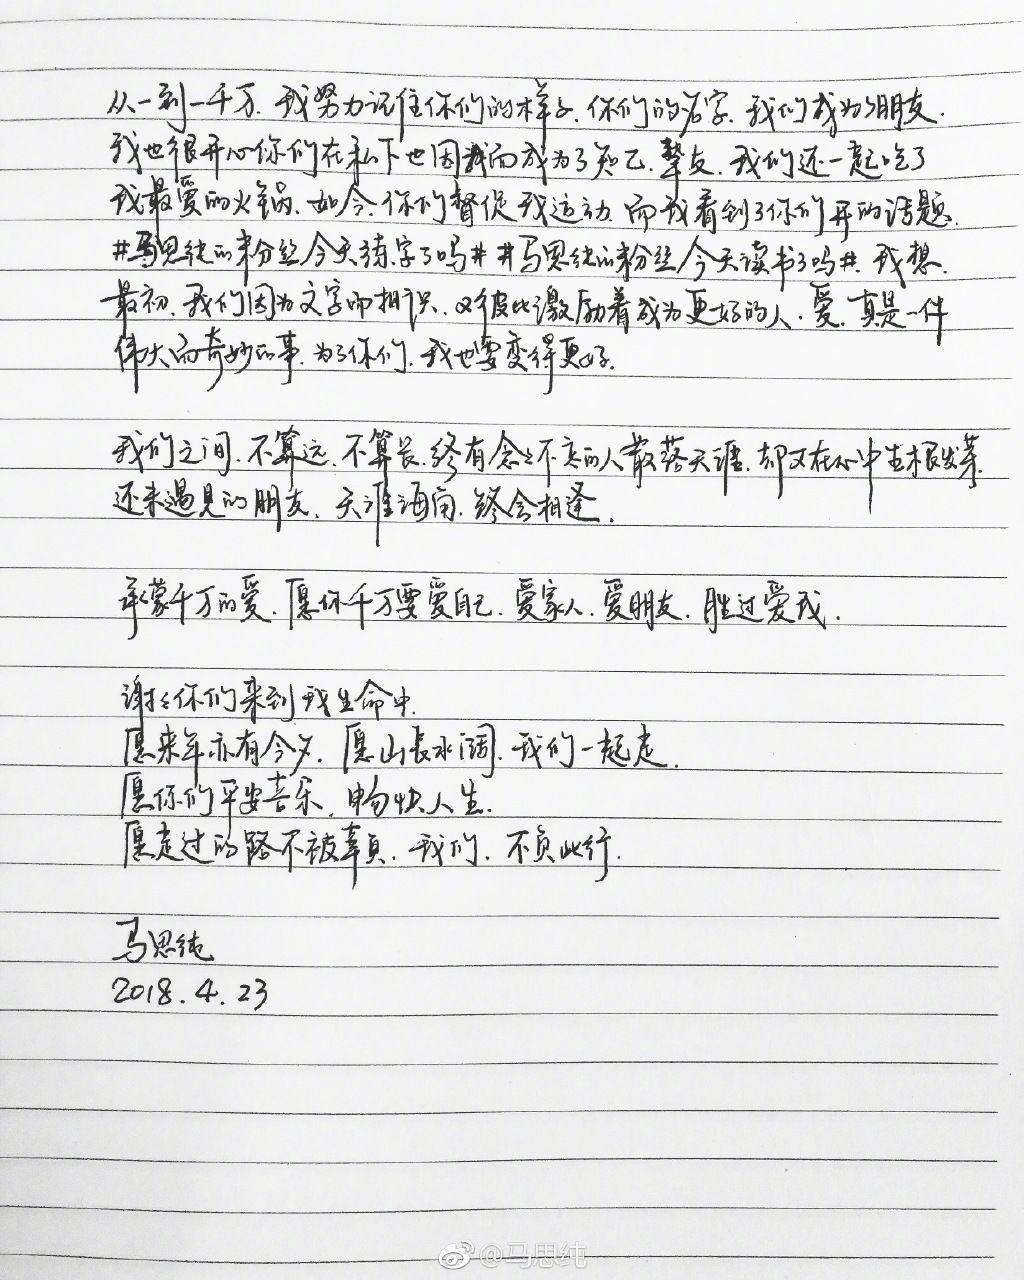 从一到一千万.我努力记住你们的样子.你们的名字.我们成为了朋友.
我也很开心你们在私下也因我而成为了知己.挚友.我们还一起吃了
我最爱的火锅.如今.你们督促我运动.而我看到了你们开的话题.
#马思纯的粉丝今天练字了吗# #马思纯的粉丝今天读书了吗#.我想.
最初.我们因为文字而相识.又彼此激励着成为更好的人.爱.真是一件
伟大而奇妙的事.为了你们.我也要变得更好.
我们之间.不算远.不算长.终有念念不忘的人散落天涯.却又在心中生根发芽.
还未遇见的朋友.天涯海角.终会相逢.
承蒙千万的爱.愿你千万要爱自己.爱家人.爱朋友.胜过爱我.
谢谢你们来到我生命中.
愿来年亦有今夕.愿山长水阔.我们一起走.
愿你们平安喜乐.畅快人生.
愿走过的路不被辜负.我们.不负此行.
马思纯
2018.4.23
@马思纯